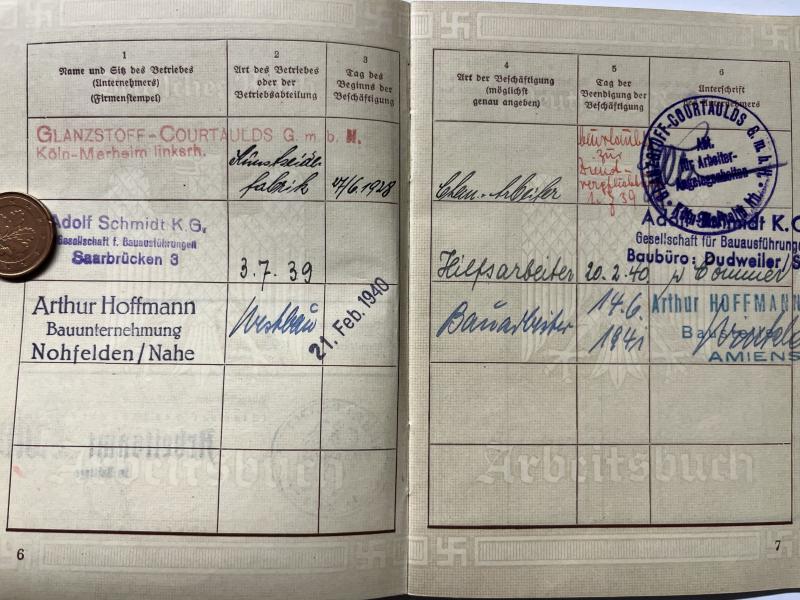 1
Name und Sitz des Betriebes
(Unternehmers)
(Firmenstempel)
2
Art des Betriebes
oder der
Betriebsabteilung
3
Tag des
Beginns der
Beschäftigung
GLANZSTOFF-COURTAULDS G. m. b. H.
Köln-Merheim linksrh.
Kunstseide-
fabrik
Adolf Schmidt K.G.
Gesellschaft f. Bauausführungen
Saarbrücken 3
3.7.39
Arthur Hoffmann
Bauunternehmung
Nohfelden/Nahe
Westbau
21. Feb. 1940
Arbeitsamt
Arbeitsbuch
6
4
Art der Beschäftigung
(möglichst
genau angeben)
5
Tag der
Beendigung der
Beschäftigung
6
Unterschrift
des Unternehmers
Chem.-Arbeiter
beurlaubt
zur
Dienst-
verpflichtung
1.7.39
GLANZSTOFF-COURTAULDS G. m. b. H.
Abt.
für Arbeiter-
Angelegenheiten
Adolf Schmidt K.G
Gesellschaft für Bauausführungen
Baubüro: Dudweiler/S
Hilfsarbeiter
20.2.40
Bauarbeiter
14.6.
1941
Arthur HOFFMANN
AMIENS
Arbeitsbuch
7